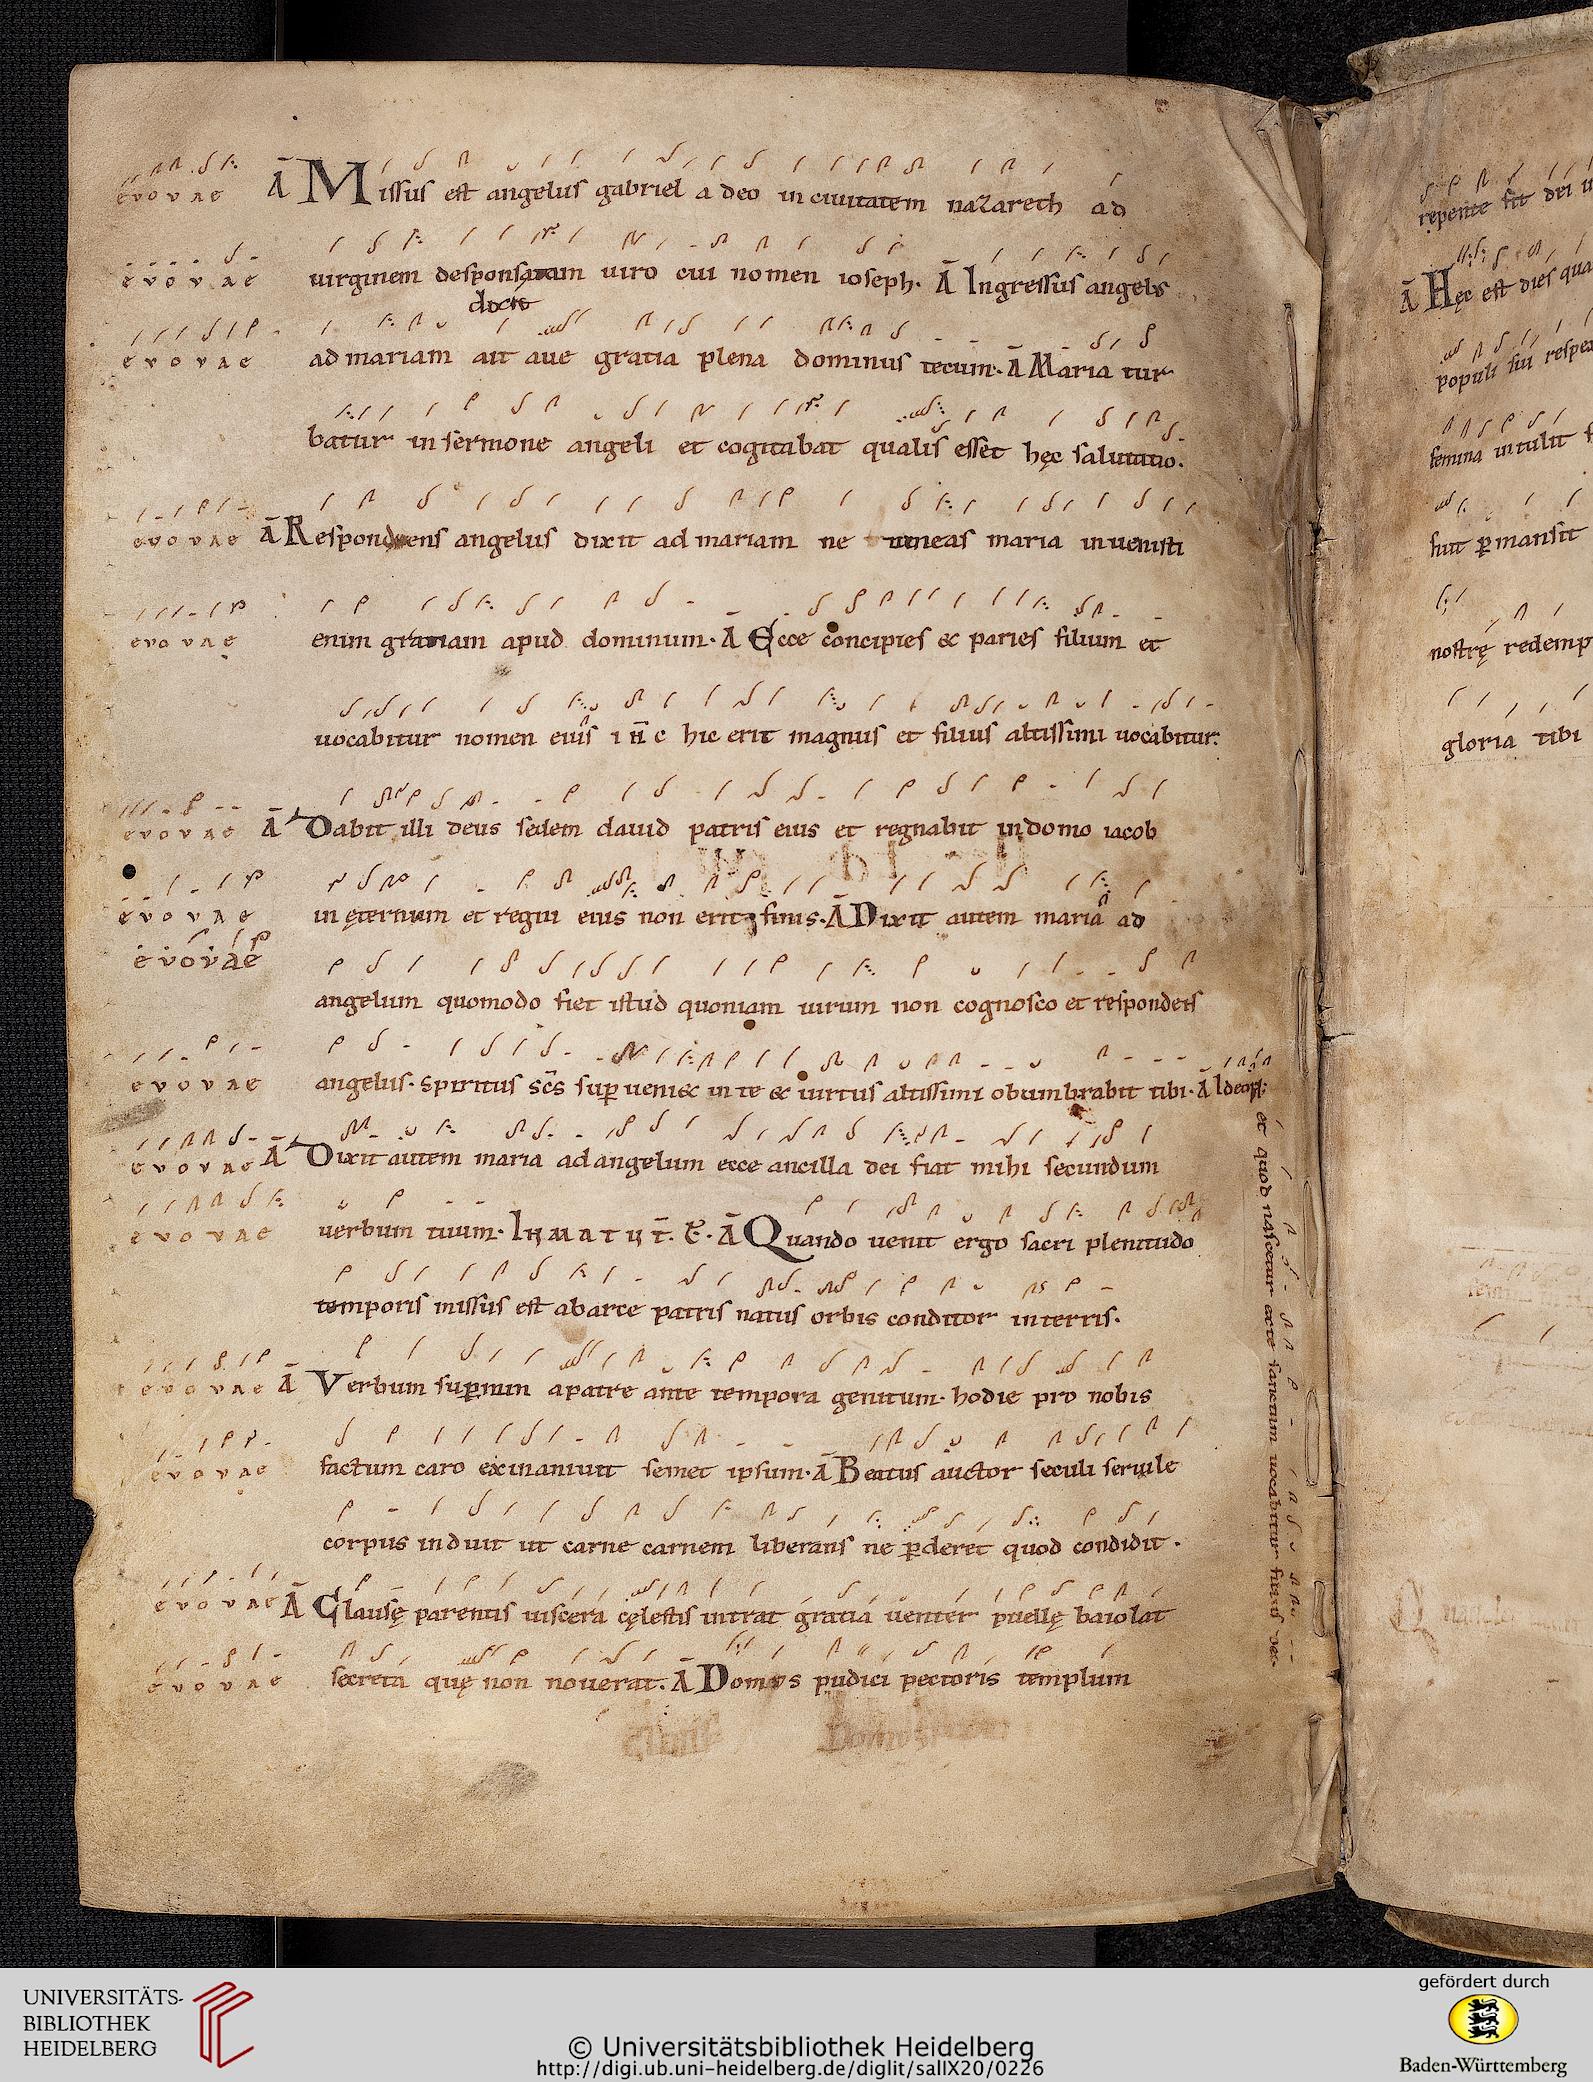 evovae Ā Missus est angelus gabriel a deo in ciuitatem nazareth ad
evovae uirginem desponsatam uiro cui nomen ioseph. Ā Ingressus angelus
evovae ad mariam ait aue gratia plena dominus tecum. Ā Maria tur
batur in sermone angeli et cogitabat qualis esset hęc salutatio.
evovae Ā Respondens angelus dixit ad mariam ne timeas maria inuenisti
evovae enim gratiam apud dominum. Ā Ecce concipies & paries filium et
uocabitur nomen eius ihc hic erit magnus et filius altissimi uocabitur.
evovae Ā Dabit illi deus sedem dauid patris eius et regnabit in domo iacob
evovae in ęternum et regni eius non erit finis. Ā Dixit autem maria ad
evovae
angelum quomodo fiet istud quoniam uirum non cognosco et respondens
evovae angelus. Spiritus scs sup ueni& in te & uirtus altissimi obumbrabit tibi. Ā Ideoq;
et quod nascetur ex te sanctum uocabitur filius dei
evovae Ā Dixit autem maria ad angelum ecce ancilla dei fiat mihi secundum
evovae uerbum tuum. IN NATIVIT. E. Ā Quando uenit ergo sacri plenitudo
temporis missus est ab arce patris natus orbis conditor in terris.
evovae Ā Verbum supnum a patre ante tempora genitum. hodie pro nobis
evovae factum caro exinaniuit semet ipsum. Ā Beatus auctor seculi seruile
corpus induit ut carne carnem liberans ne pderet quod condidit.
evovae Ā Clausę parentis uiscera cęlestis intrat gratia uenter puellę baiolat
evovae secreta quę non nouerat. Ā Domus pudici pectoris templum
repente fit dei
Ā Hęc est dies qua
populi sui
femina intulit
fuit pmansit
nostrę redemp
gloria tibi
UNIVERSITÄTS-
BIBLIOTHEK
HEIDELBERG
© Universitätsbibliothek Heidelberg
http://digi.ub.uni-heidelberg.de/diglit/salIX20/0226
gefördert durch
Baden-Württemberg